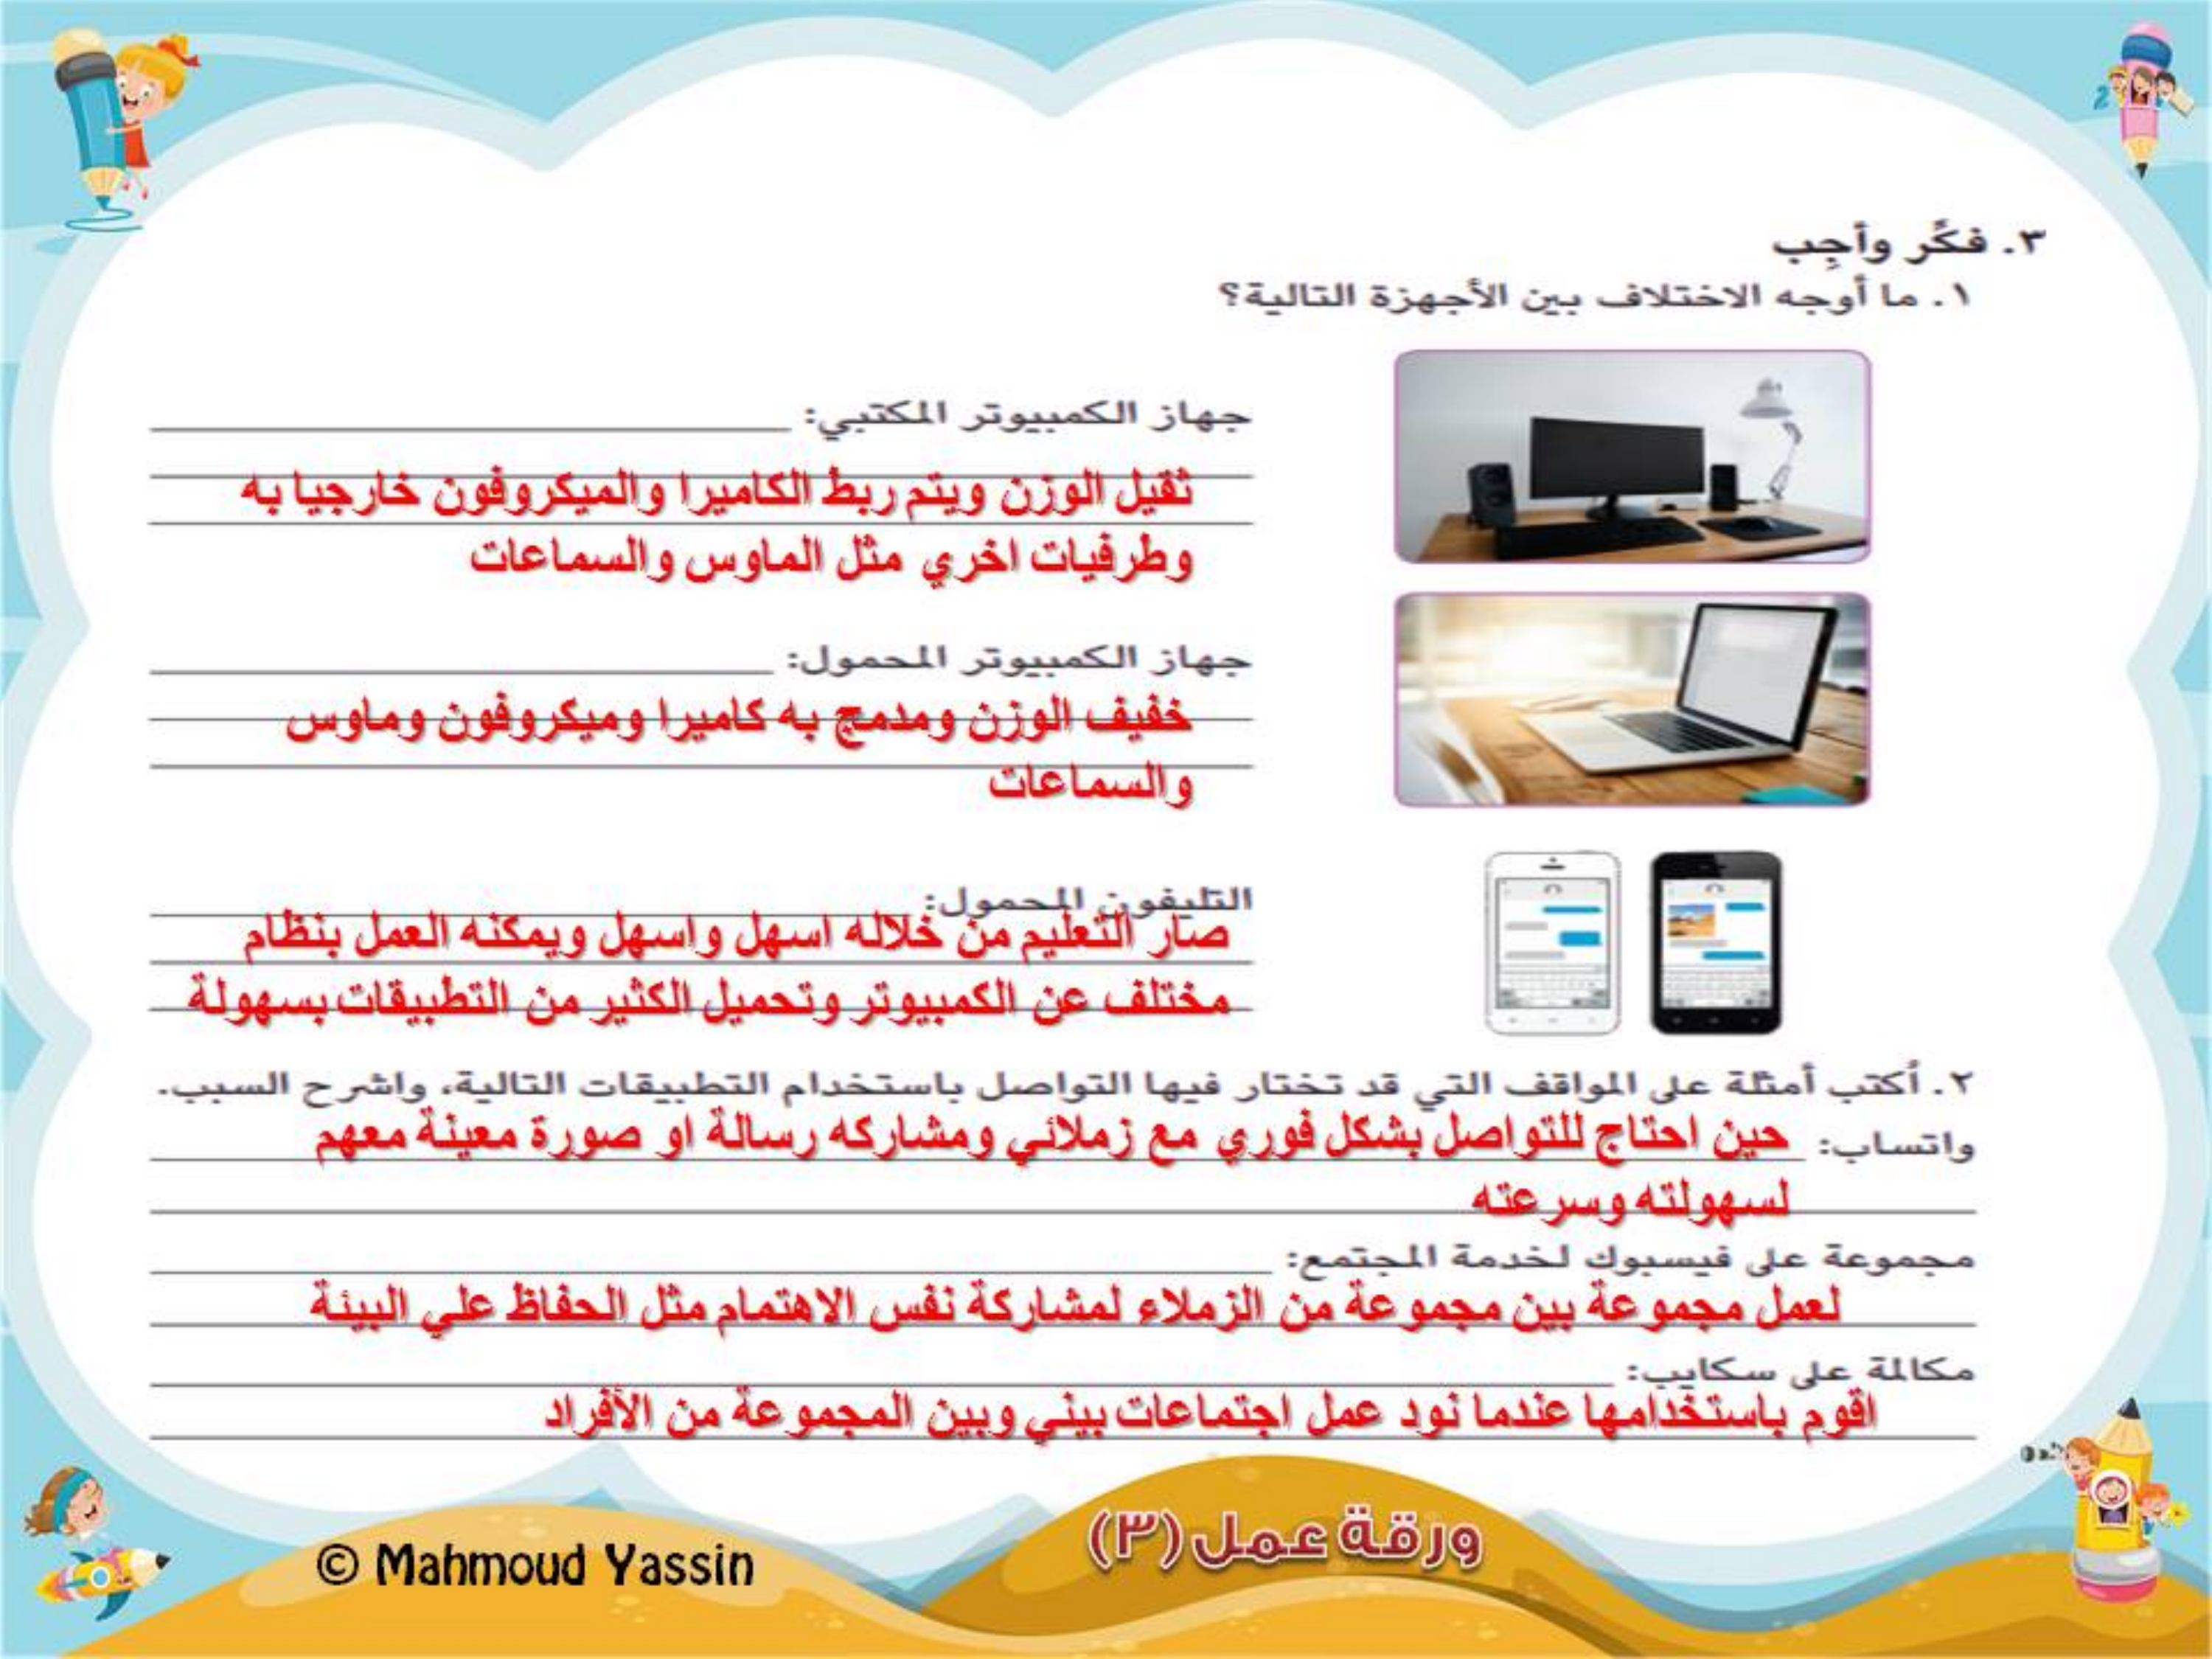 ٣. فكِّر وأجِب
١. ما أوجه الاختلاف بين الأجهزة التالية؟
جهاز الكمبيوتر المكتبي:
ثقيل الوزن ويتم ربط الكاميرا والميكروفون خارجيا به
وطرفيات اخري مثل الماوس والسماعات
جهاز الكمبيوتر المحمول:
خفيف الوزن ومدمج به كاميرا وميكروفون وماوس
والسماعات
التليفون المحمول:
صار التعليم من خلاله اسهل واسهل ويمكنه العمل بنظام
مختلف عن الكمبيوتر وتحميل الكثير من التطبيقات بسهولة
٢. أكتب أمثلة على المواقف التي قد تختار فيها التواصل باستخدام التطبيقات التالية، واشرح السبب.
واتساب: حين احتاج للتواصل بشكل فوري مع زملائي ومشاركه رسالة او صورة معينة معهم
لسهولته وسرعته
مجموعة على فيسبوك لخدمة المجتمع:
لعمل مجموعة بين مجموعة من الزملاء لمشاركة نفس الاهتمام مثل الحفاظ علي البيئة
مكالمة على سكايب:
اقوم باستخدامها عندما نود عمل اجتماعات بيني وبين المجموعة من الأفراد
ورقة عمل (٣)
© Mahmoud Yassin